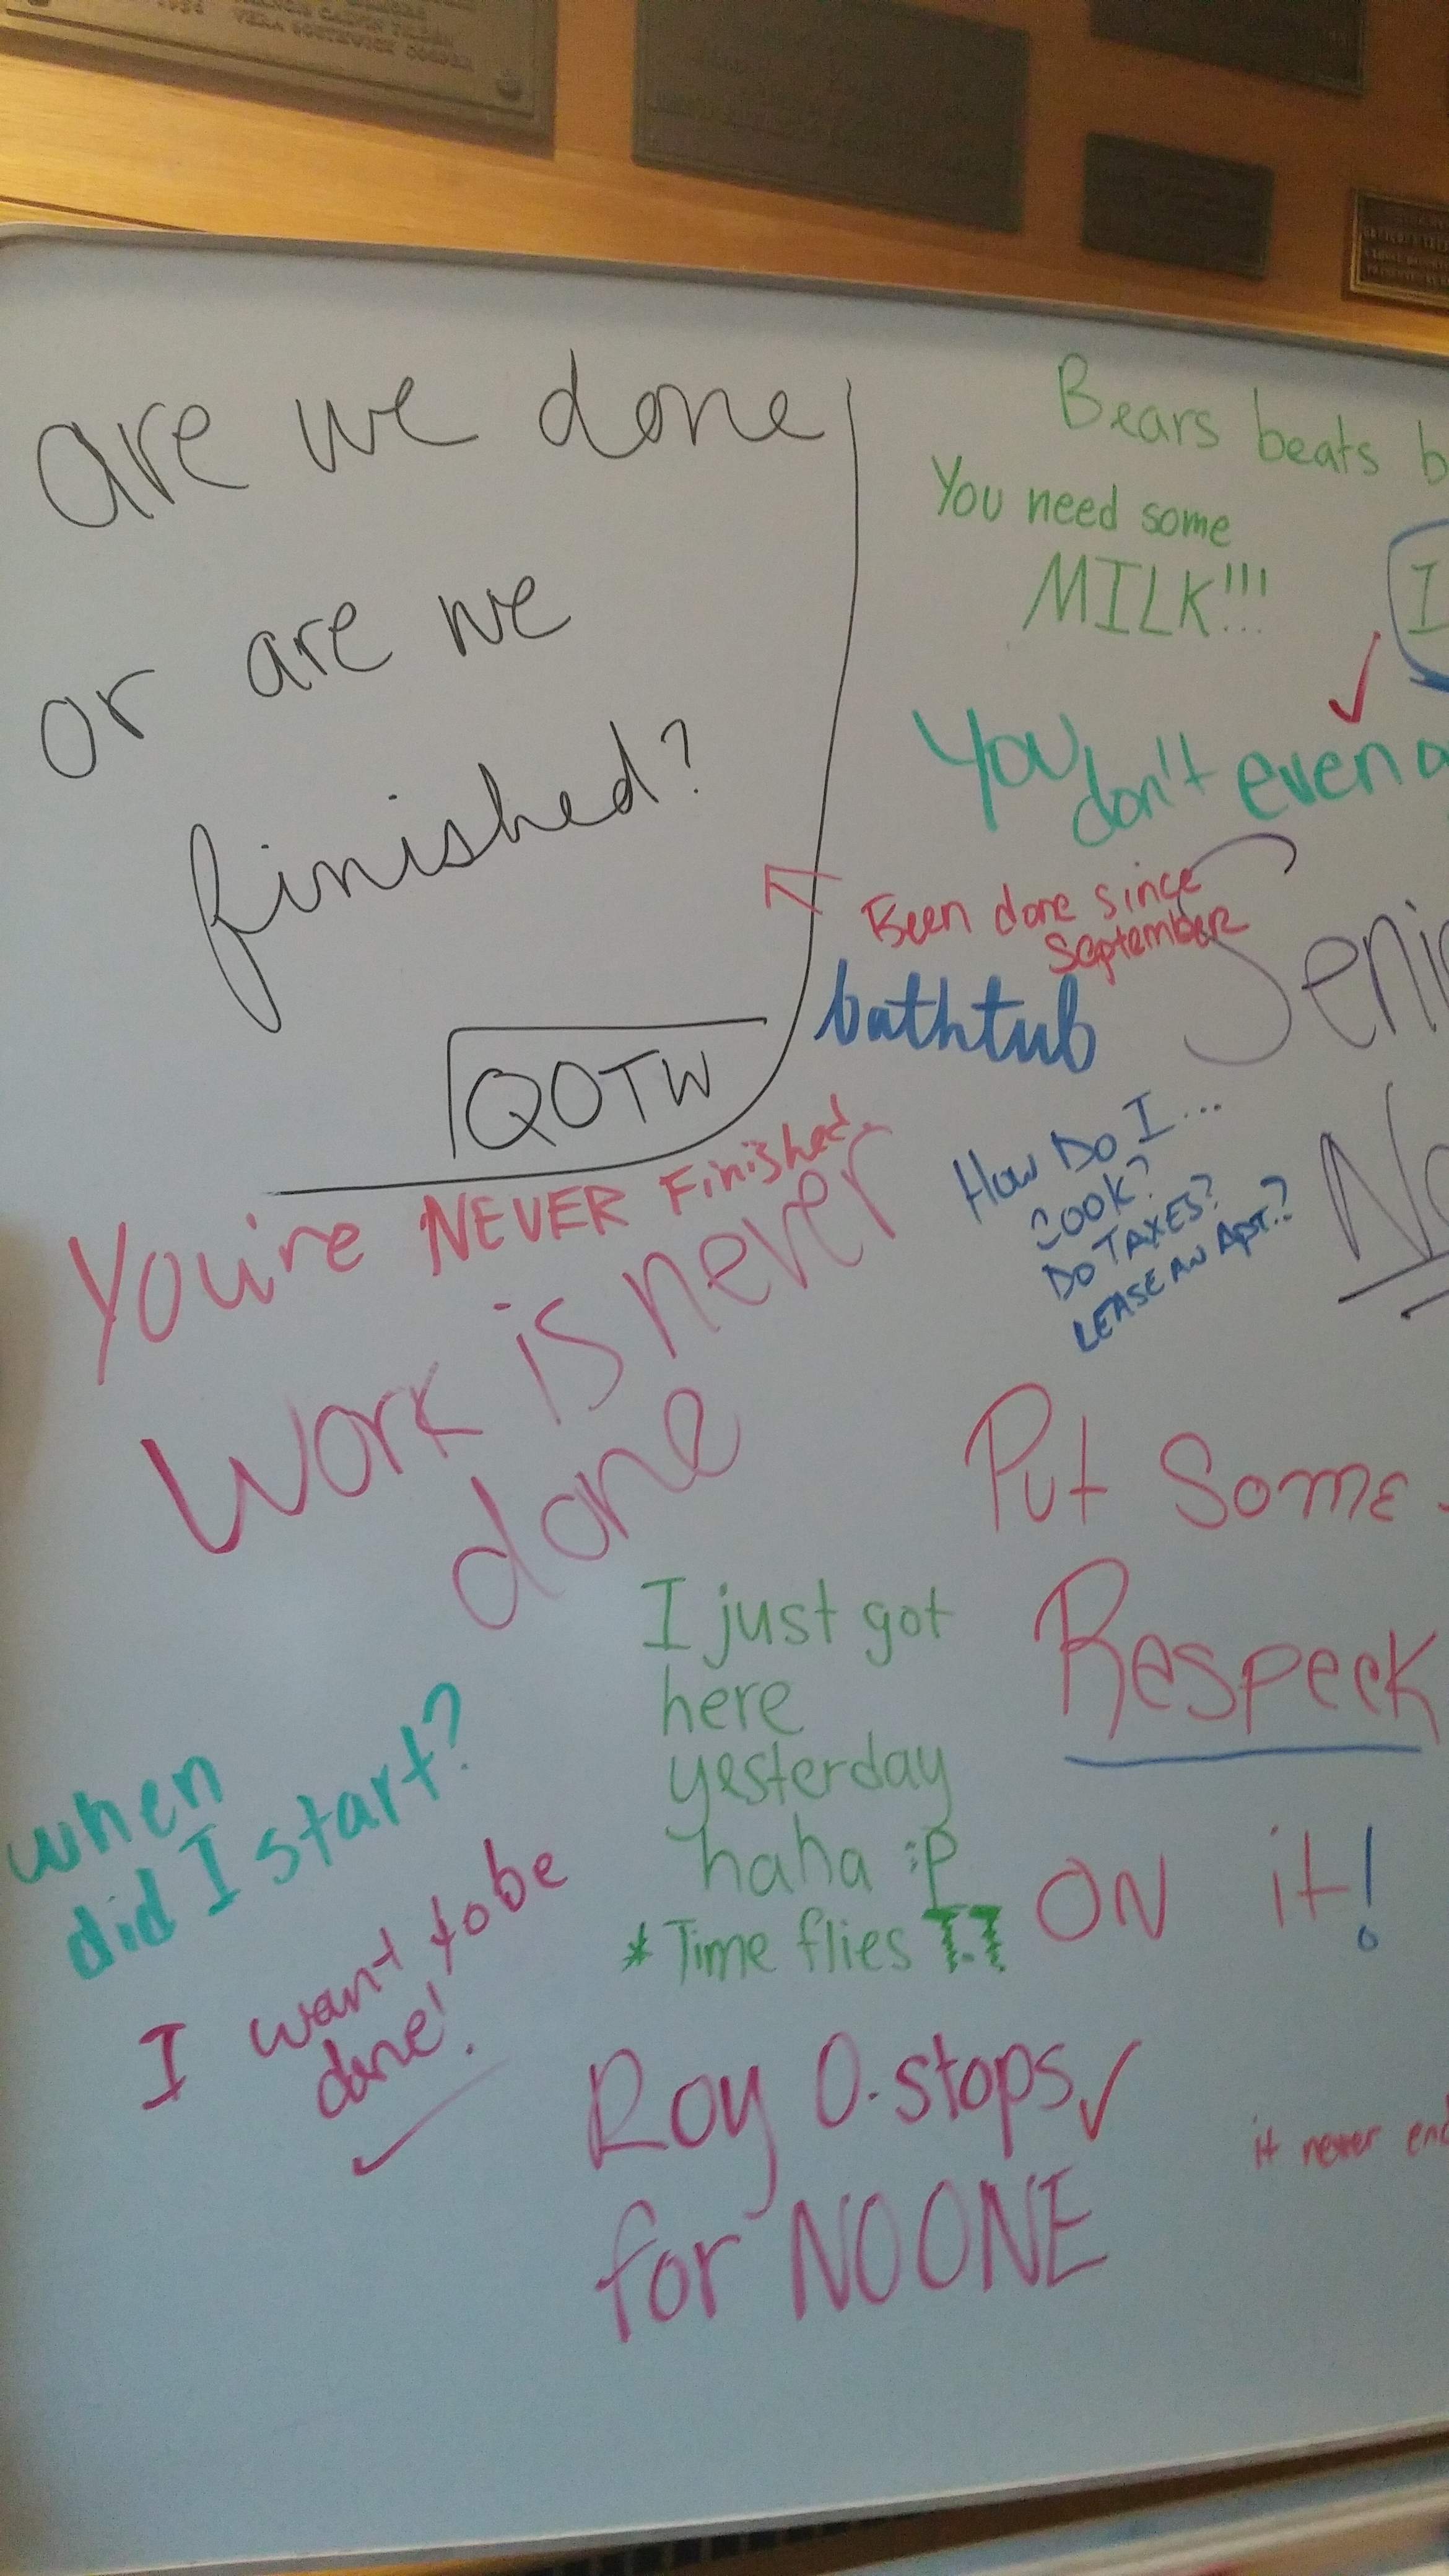 VERA SOUTHWICK COOPER
are we done
or are we
finished?
QOTW
Bears beats b
You need some
MILK!!!
I
You don't even
Been done since
September
bathtub
Seni
You're NEVER Finished.
Work is never
done
How Do I...
COOK?
DO TAXES?
LEASE AN APT.?
No
Put Some
Respeck
ON it!
I just got
here
yesterday
haha :P
* Time flies T.T
when
did I start?
I want to be
done!
Roy O. stops
for NO ONE
it never end